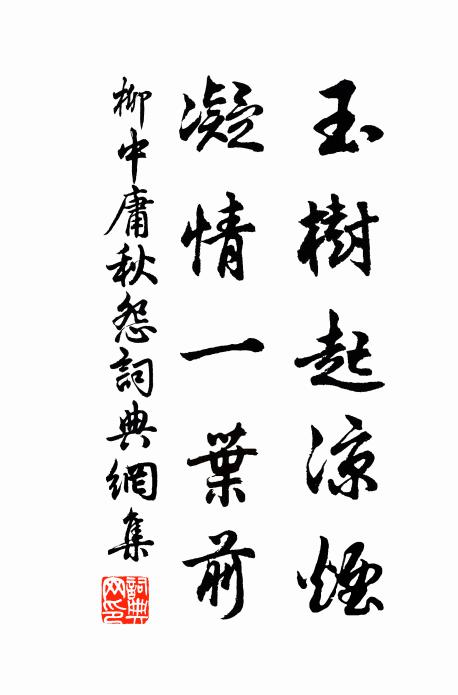 玉樹起涼煙
凝情一葉前
柳中庸秋怨詞典網集
詞典網印